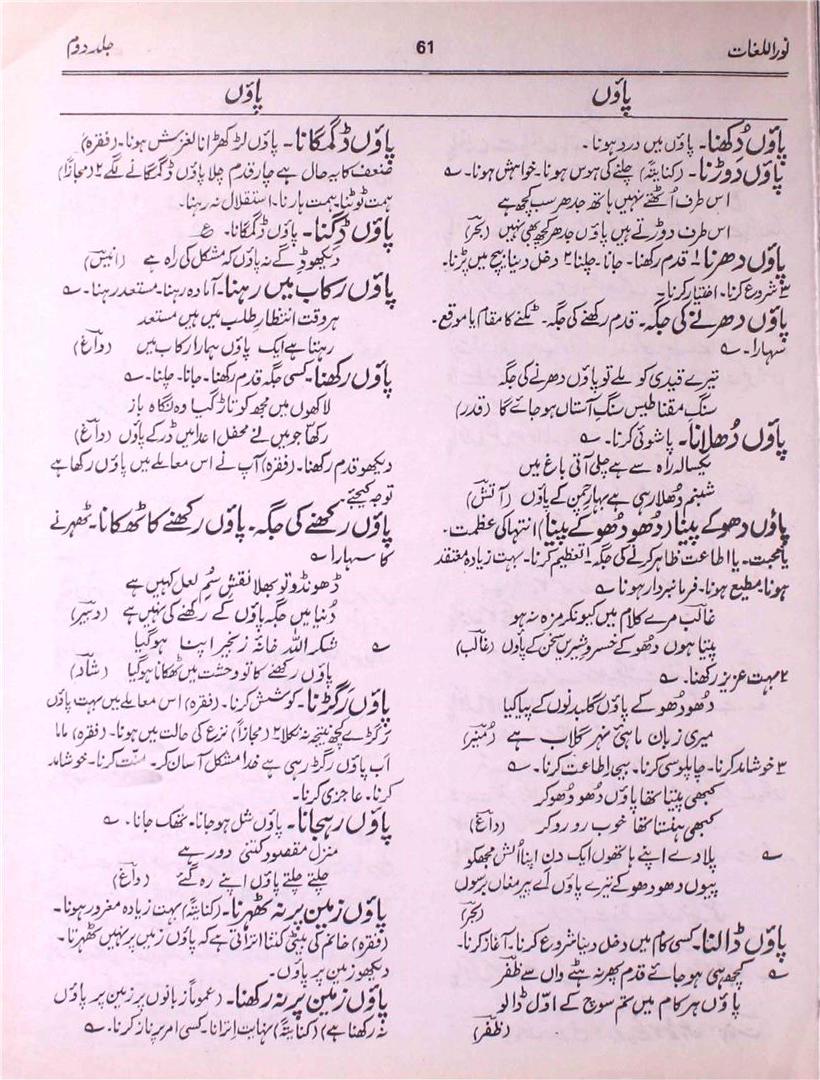 نوراللغات
61
جلد دوم
پاؤں
پاؤں دُکھنا۔ پاؤں میں درد ہونا۔
پاؤں دَوڑنا۔ (کنایتہً) چلنے کی ہوس ہونا۔ خواہش ہونا۔ ؎
اس طرف اُٹھتے نہیں ہاتھ جدھر سب کچھ ہے
اس طرف دوڑتے ہیں پاؤں جدھر کچھ بھی نہیں (بحرؔ)
پاؤں دھرنا ۱ قدم رکھنا۔ جانا۔ چلنا ۲ دخل دینا۔ بیچ میں پڑنا۔
۳ شروع کرنا۔ اختیار کرنا۔
پاؤں دھرنے کی جگہ۔ قدم رکھنے کی جگہ۔ ٹکنے کا مقام یا موقع۔
سہارا۔ ؎
تیرے قیدی کو ملے تو پاؤں دھرنے کی جگہ
سنگِ مقناطیس سنگِ آستاں ہو جائے گا (قدر)
پاؤں دُھلانا۔ پاشوئی کرنا۔ ؎
یکسالہ راہ سے ہے چلی آتی باغ میں
شبنم دُھلا رہی ہے بہارِ چمن کے پاؤں (آتشؔ)
پاؤں دھو کے پینا (دُھو دُھو کے پینا) انتہا کی عظمت۔
یا محبت۔ یا اطاعت ظاہر کرنے کی جگہ۔ ۱ تعظیم کرنا۔ بہت زیادہ معتقد
ہونا۔ مطیع ہونا۔ فرمانبردار ہونا ؎
غالبؔ مرے کلام میں کیونکر مزہ نہ ہو
پیتا ہوں دھو کے خسروِ شیریں سخن کے پاؤں (غالب)
۲ بہت عزیز رکھنا۔ ؎
دھو دھو کے پاؤں گلبدنوں کے پیا کیا
میری زبان ماہیٔ نہرِ گلاب ہے (مُنیرؔ)
۳ خوشامد کرنا۔ چاپلوسی کرنا۔ بیجا اطاعت کرنا۔ ؎
کبھی پیتا تھا پاؤں دھو دھو کر
کبھی ہنستا تھا خوب رو رو کر (داغؔ)
؎ پلا دے اپنے ہاتھوں ایک دن اپنا اُلش مجھکو
پیوں دھو دھو کے تیرے پاؤں اے پیر مغاں برسوں
(بحرؔ)
پاؤں ڈالنا۔ کسی کام میں دخل دینا شروع کرنا۔ آغاز کرنا۔
؎ کچھ ہی ہو جائے قدم پھر نہ ہٹے واں سے ظفرؔ
پاؤں ہر کام میں تم سوچ کے اوّل ڈالو
(ظفرؔ)
پاؤں
پاؤں ڈگمگانا۔ پاؤں لڑکھڑانا لغزش ہونا۔ (فقرہ)
ضعف کا یہ حال ہے چار قدم چلا پاؤں ڈگمگانے لگے ۲ (مجازاً)
ہمت ٹوٹنا۔ ہمت ہارنا۔ استقلال نہ رہنا۔
پاؤں ڈِگنا۔ پاؤں ڈگمگانا۔ ع
دیکھو ڈِگے نہ پاؤں کہ مشکل کی راہ ہے (انیسؔ)
پاؤں رکاب میں رہنا۔ آمادہ رہنا۔ مستعد رہنا۔ ؎
ہر وقت انتظارِ طلب میں ہیں مستعد
رہتا ہے ایک پاؤں ہمارا رکاب میں (داغؔ)
پاؤں رکھنا۔ کسی جگہ قدم رکھنا۔ جانا۔ چلنا۔ ؎
لاکھوں میں مجھ کو تاڑ گیا وہ نگاہ باز
رکھا جو میں نے محفل اعدا میں ڈر کے پاؤں (داغؔ)
دیکھو قدم رکھنا۔ (فقرہ) آپ نے اس معاملے میں پاؤں رکھا ہے
توجہ کیجئے۔
پاؤں رکھنے کی جگہ۔ پاؤں رکھنے کا ٹھکانا۔ ٹھہرنے
کا سہارا ؎
ڈھونڈو تو بھلا نقشِ سُمِ لعل کہیں ہے
دُنیا میں جگہ پاؤں کے رکھنے کی نہیں ہے (دبیرؔ)
؎ شکر اللہ خانۂ زنجیر اپنا ہو گیا
پاؤں رکھنے کا تو وحشت میں ٹھکانا ہو گیا (شادؔ)
پاؤں رگڑنا۔ کوشش کرنا۔ (فقرہ) اس معاملے میں بہت پاؤں
رگڑے کچھ نتیجہ نہ نکلا ۲ (مجازاً) نزع کی حالت میں ہونا۔ (فقرہ) ماما
اب پاؤں رگڑ رہی ہے خدا مشکل آسان کر۔ منّت کرنا۔ خوشامد
کرنا۔ عاجزی کرنا۔
پاؤں رہجانا۔ پاؤں شل ہو جانا۔ تھک جانا۔ ؎
منزلِ مقصود کتنی دور ہے
چلتے چلتے پاؤں اپنے رہ گئے (داغؔ)
پاؤں زمین پر نہ ٹھہرنا۔ (کنایتہً) بہت زیادہ مغرور ہونا۔
(فقرہ) خانم کی بیٹی کتنا اتراتی ہے کہ پاؤں زمین پر نہیں ٹھہرتا۔
دیکھو زمین پر پاؤں۔
پاؤں زمین پر نہ رکھنا۔ (عموماً زبانوں پر زمین پر پاؤں
نہ رکھنا ہے) (کنایتہً) نہایت اِترانا۔ کسی امر پر ناز کرنا۔ ؎